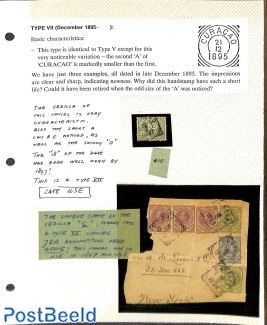 TYPE VII (December 1895- ):
Basic characteristics:
- This type is identical to Type V except for this
very noticeable variation – the second 'A' of
'CURACAO' is markedly smaller than the first.
CURACAO
21
12
1895
We have just three examples, all dated in late December 1895. The impressions
are clear and sharp, indicating newness. Why did this handstamp have such a short
life? Could it have been retired when the odd size of the 'A' was noticed?
THE CEDILLA OF
THIS CANCEL IS VERY
CHARACTERISTIC.
ALSO THE SHORT A
CAN BE NOTICED, AS
WELL AS THE SKINNY "O"
THE "18" OF THE DATE
HAS BEEN WELL WORN BY
1897!
THIS IS A TYPE VII
LATE USE
THE UNIQUE SHAPE OF THE
CEDILLA MAKES THIS
A TYPE VII CANCEL
New York
PostBeeld